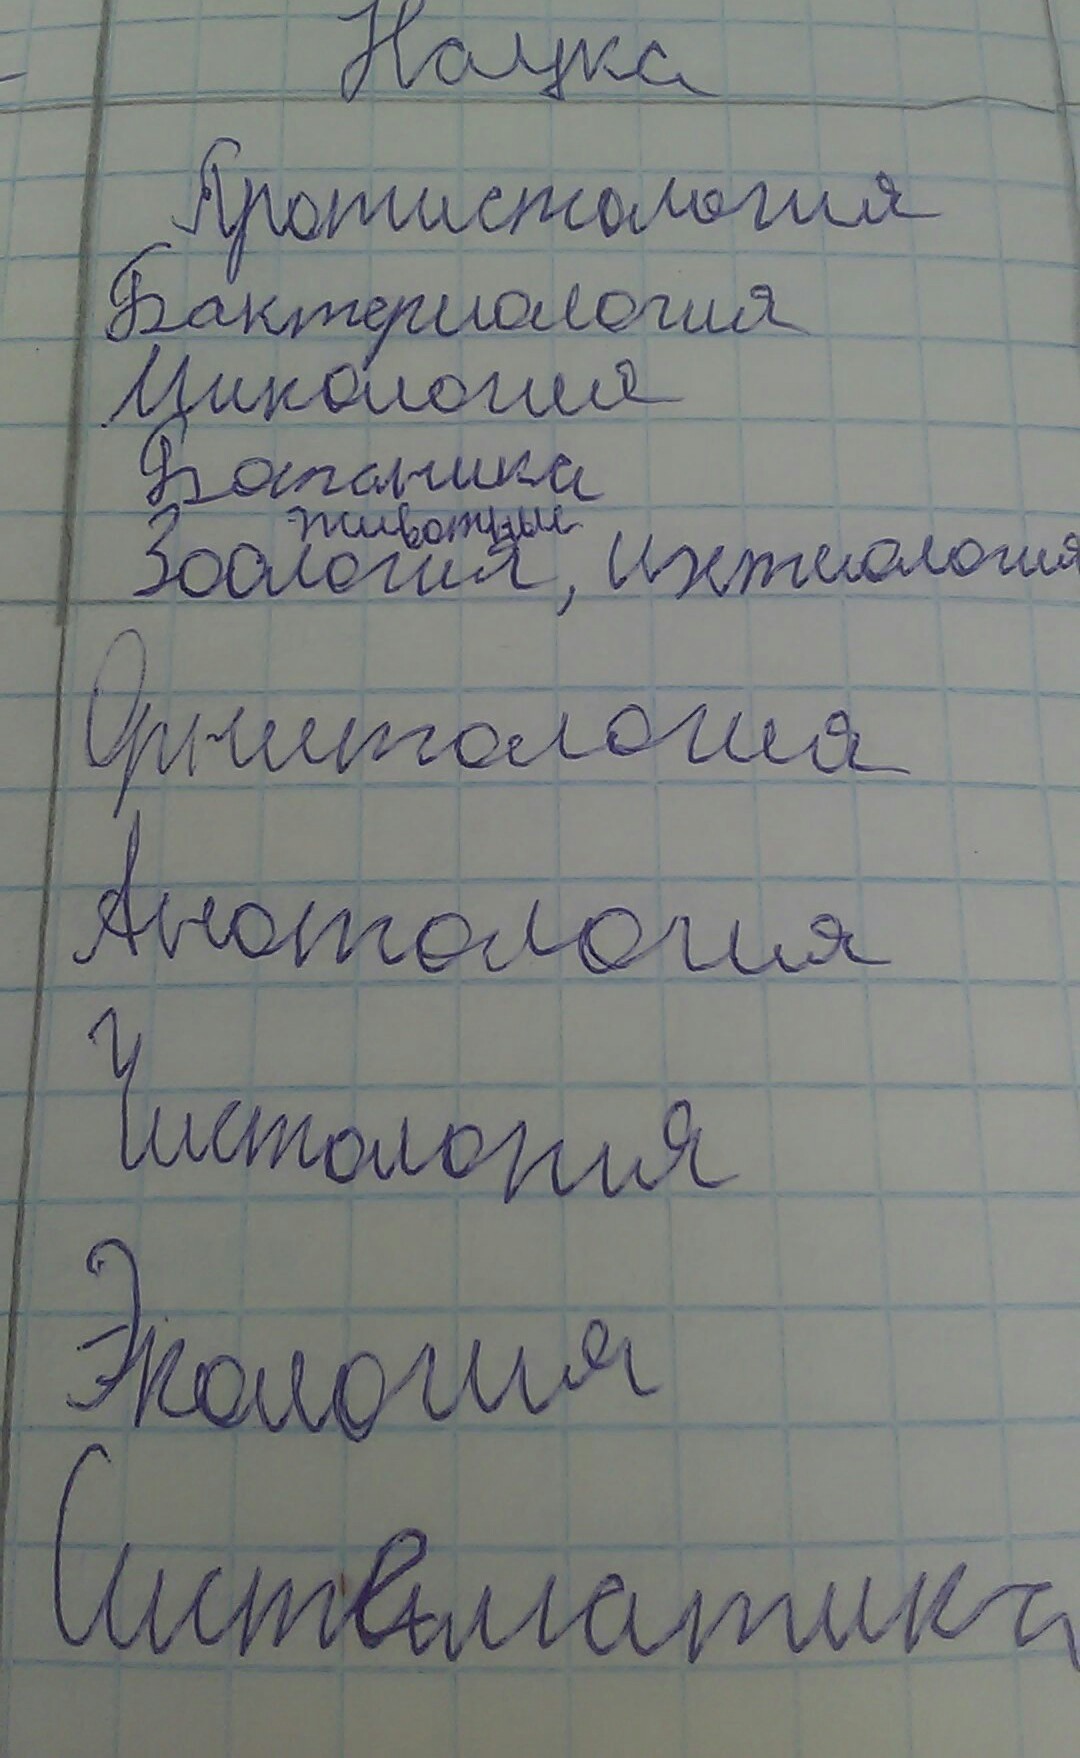 Наука
Протистология
Бактериология
Микология
Ботаника
животные
Зоология, ихтиология
Орнитология
Анотология
Чистология
Экология
Систематика